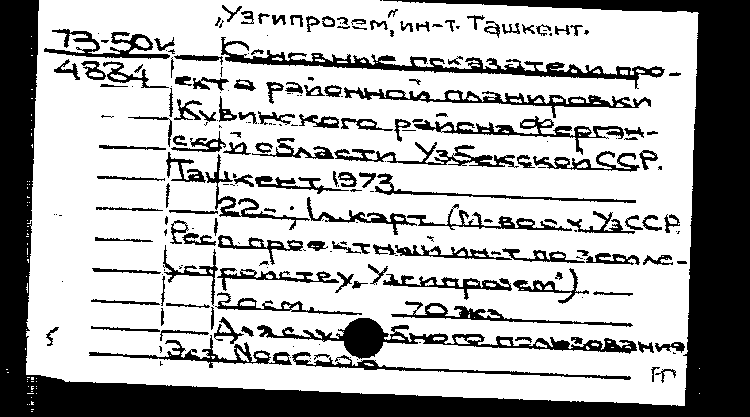 „Узгипрозем", ин-т. Ташкент.
73-50к Основные показатели про-
4884 екта районной планировки
Кувинского района Ферган-
ской области Узбекской ССР.
Ташкент, 1973.
22с.; 1л. карт. (М-во с.х. УзССР.
Респ. проектный ин-т по земле-
устройству „Узгипрозем")
20см. 70 экз.
Для служебного пользования
Экз. №000005.